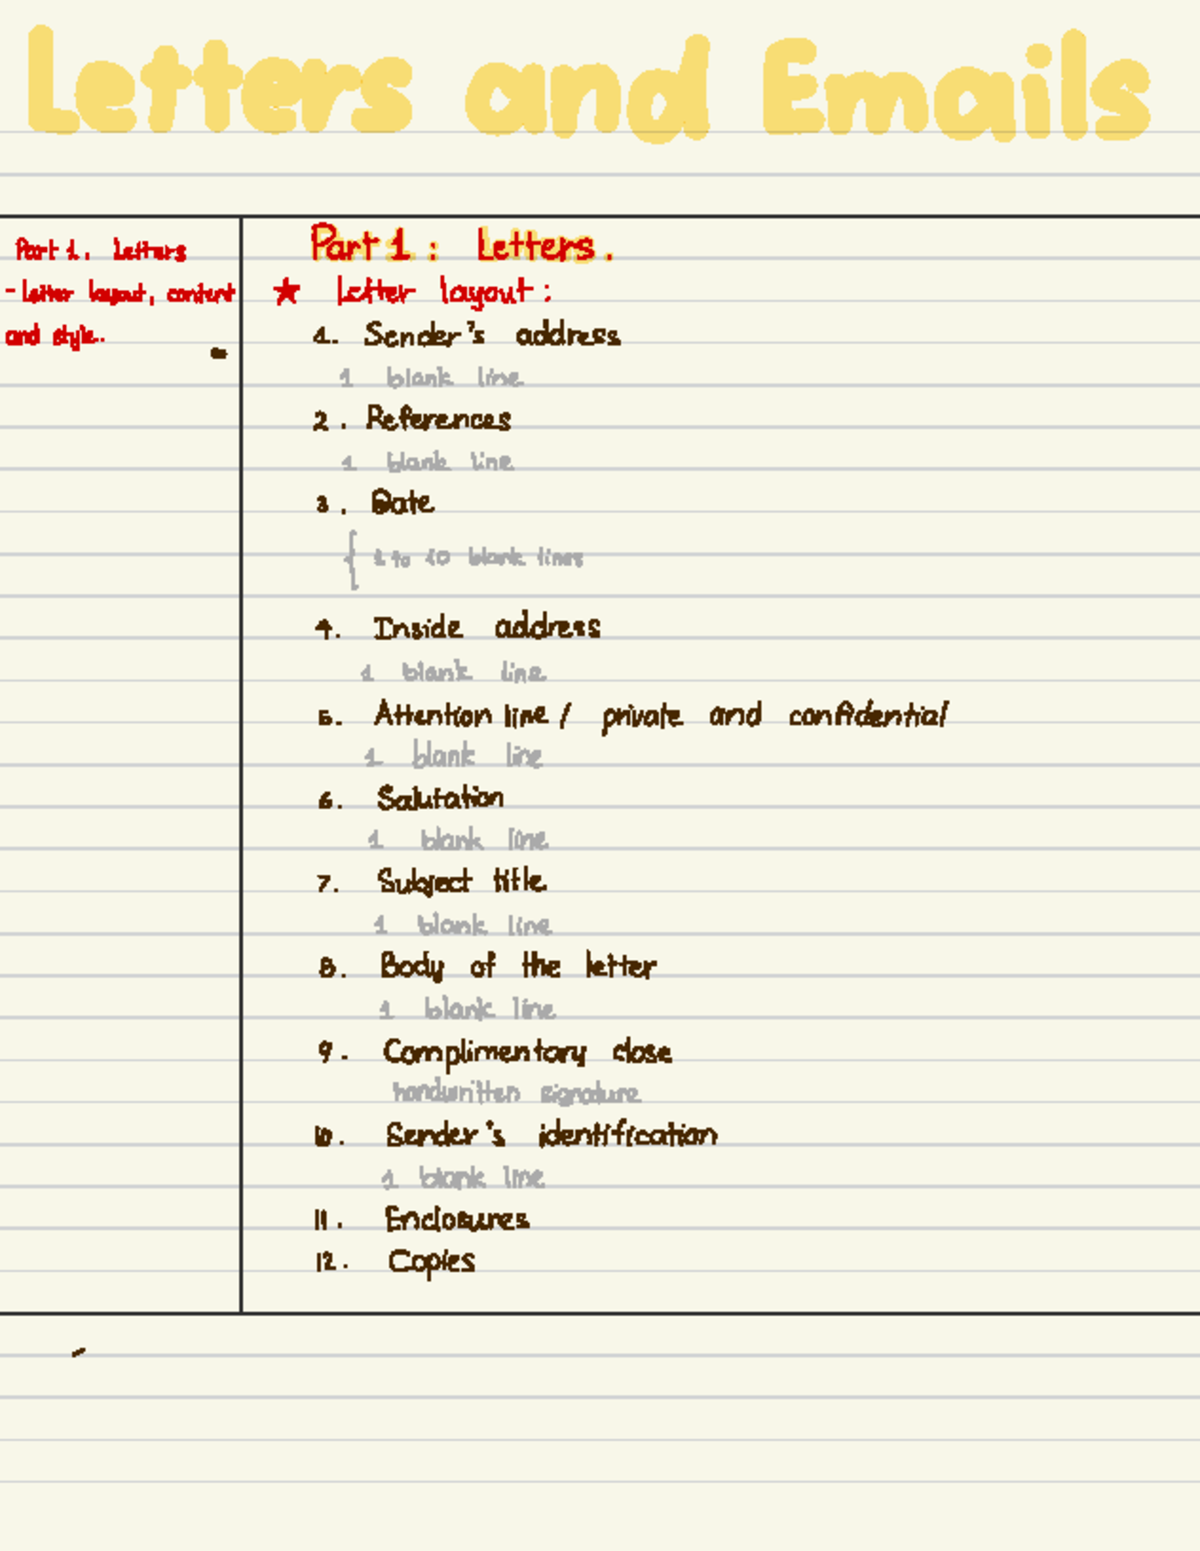 Letters and Emails
Part 1. Letters
- letter layout, content
and style.
Part 1 : Letters.
★ Letter layout :
1. Sender's address
1 blank line
2. References
1 blank line
3. Date
{ 1 to 10 blank lines
4. Inside address
1 blank line
5. Attention line / private and confidential
1 blank line
6. Salutation
1 blank line
7. Subject title
1 blank line
8. Body of the letter
1 blank line
9. Complimentary close
handwritten signature
10. Sender's identification
1 blank line
11. Enclosures
12. Copies